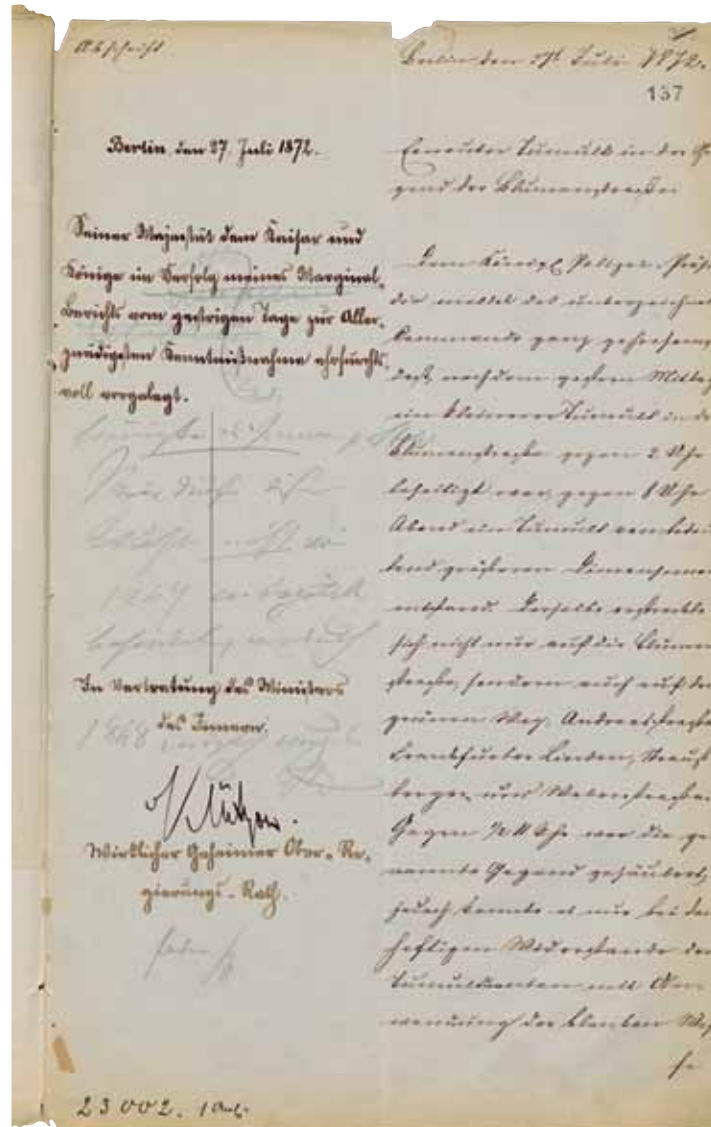 Abschrift
Berlin, den 27. Juli 1872.
Seiner Majestät dem Kaiser und
Könige im Verfolg meines Marginal-
Berichts vom gestrigen Tage zur Aller-
gnädigsten Kenntnißnahme ehrfurchts-
voll vorgelegt.
In Vertretung des Ministers
des Innern.
Wirklicher Geheimer Ober-Re-
gierungs-Rath.
23002. 1 Anl.
Berlin den 27t Juli 1872.
137
Erneuter Tumult in der Ge
gend der Blumenstraße
Dem Königl Polizei-Präsi
dio meldet das unterzeichnet
Kommando ganz gehorsams
daß, nachdem gestern Mittag
ein kleinerer Tumult in de
Blumenstraße gegen 2 Uhr
beseitigt war, gegen 8 Uhr
Abend ein Tumult von bedeu
tend größeren Dimensionen
entstand. Derselbe erstreckte
sich nicht nur auf die Blumen
straße, sondern auch auf den
grünen Weg, Andreasstraße
Frankfurter Linden, Straus
berger und Weberstraße.
Gegen ½ 11 Uhr war die ge
nannte Gegend gesäubert,
jedoch konnte es nur bei dem
heftigen Widerstande der
Tumultuanten mit An
wendung der blanken Waf
fe